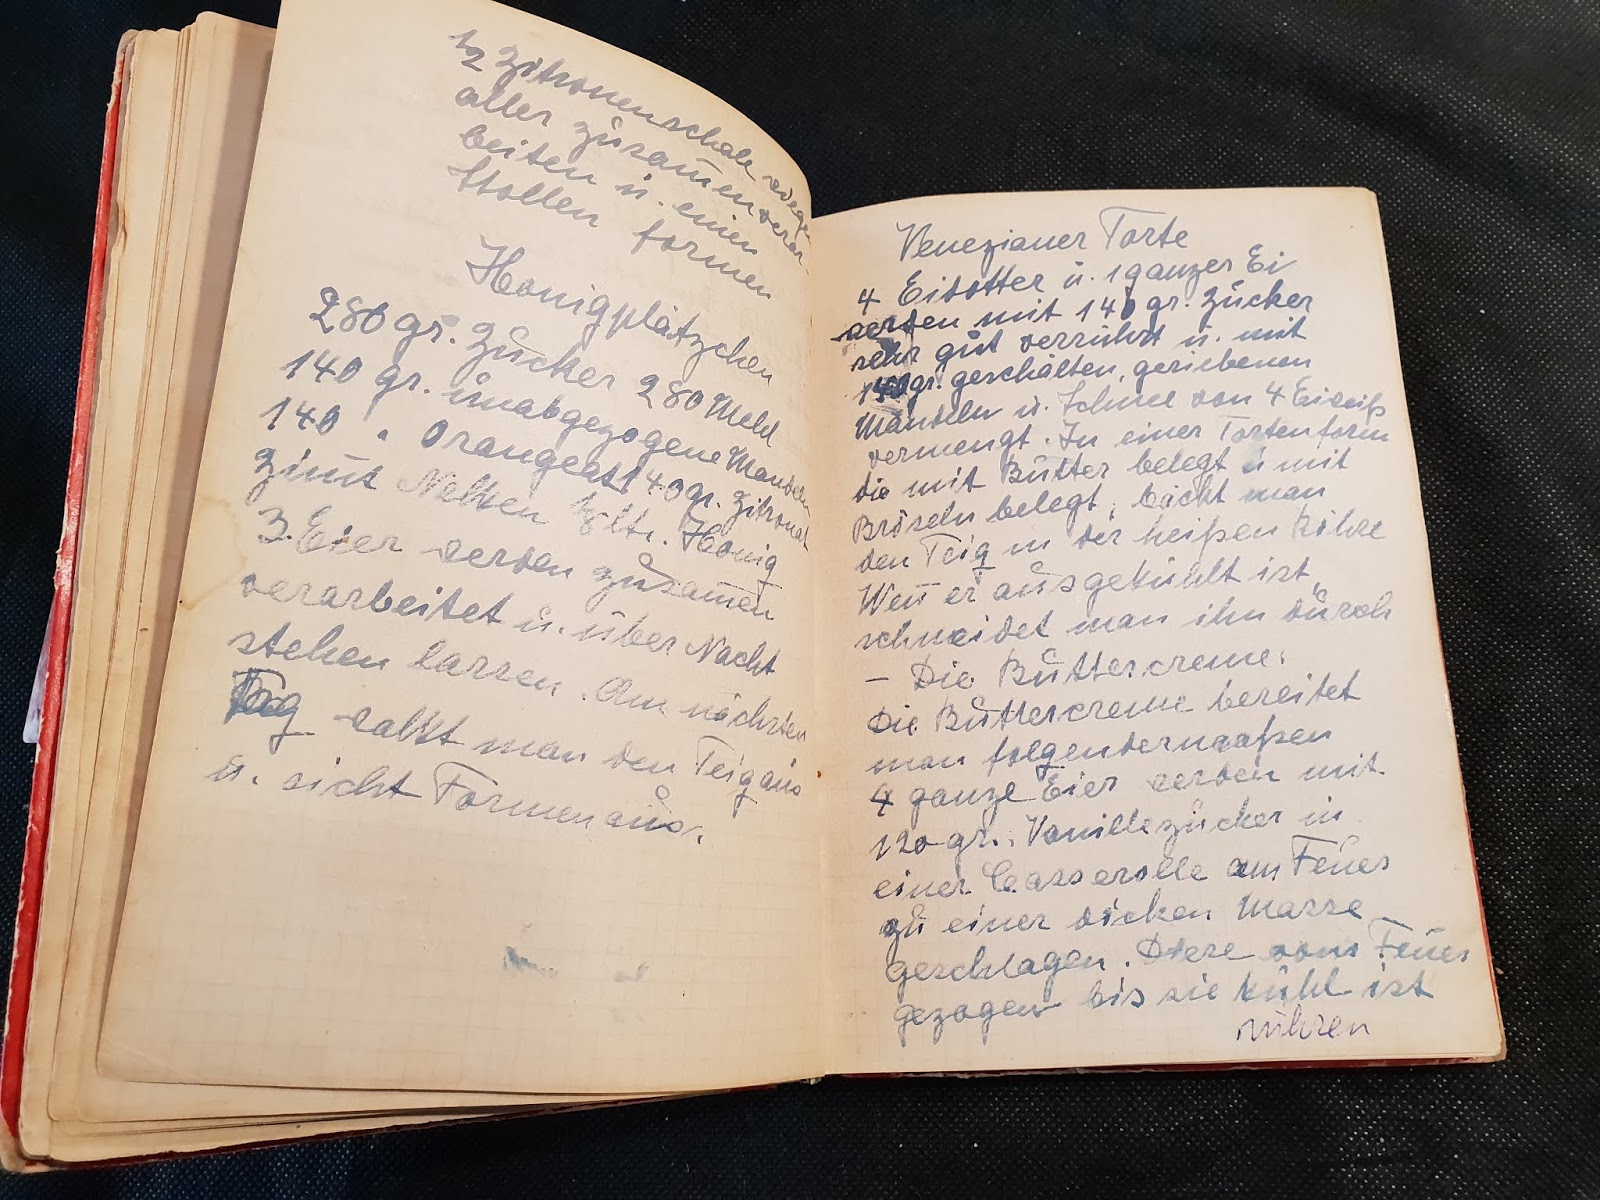 1/2 Zitronenschale
alles zusammenverar-
beiten u. einen
Stollen formen
Honigplätzchen
280 gr. Zucker 280 Mehl
140 gr. unabgezogene Mandeln
140 " Orangeat 140 gr. Zitronat
Zimt Nelken 1/8 ltr. Honig
3. Eier werden zusamen
verarbeitet u. über Nacht
stehen lassen. Am nächsten
Tag walkt man den Teig aus
u. sicht Formen aus.
Venezianer Torte
4 Eidotter u. 1 ganzes Ei
werden mit 140 gr. Zucker
sehr gut verrührt u. mit
140 gr. geschälten, geriebenen
Mandeln u. Schnee von 4 Eiweiß
vermengt. In einer Tortenform
die mit Butter belegt u mit
Bröseln belegt, bäckt man
den Teig in der heißen Röhre
Wen er ausgekühlt ist,
schneidet man ihn durch
– Die Buttercreme.
Die Buttercreme bereitet
man folgendermaßen
4 ganze Eier werden mit
120 gr. Vanillezucker in
einer Casserolle am Feuer
zu einer dicken Masse
geschlagen. Diese vom Feuer
gezogen bis sie kühl ist
rühren